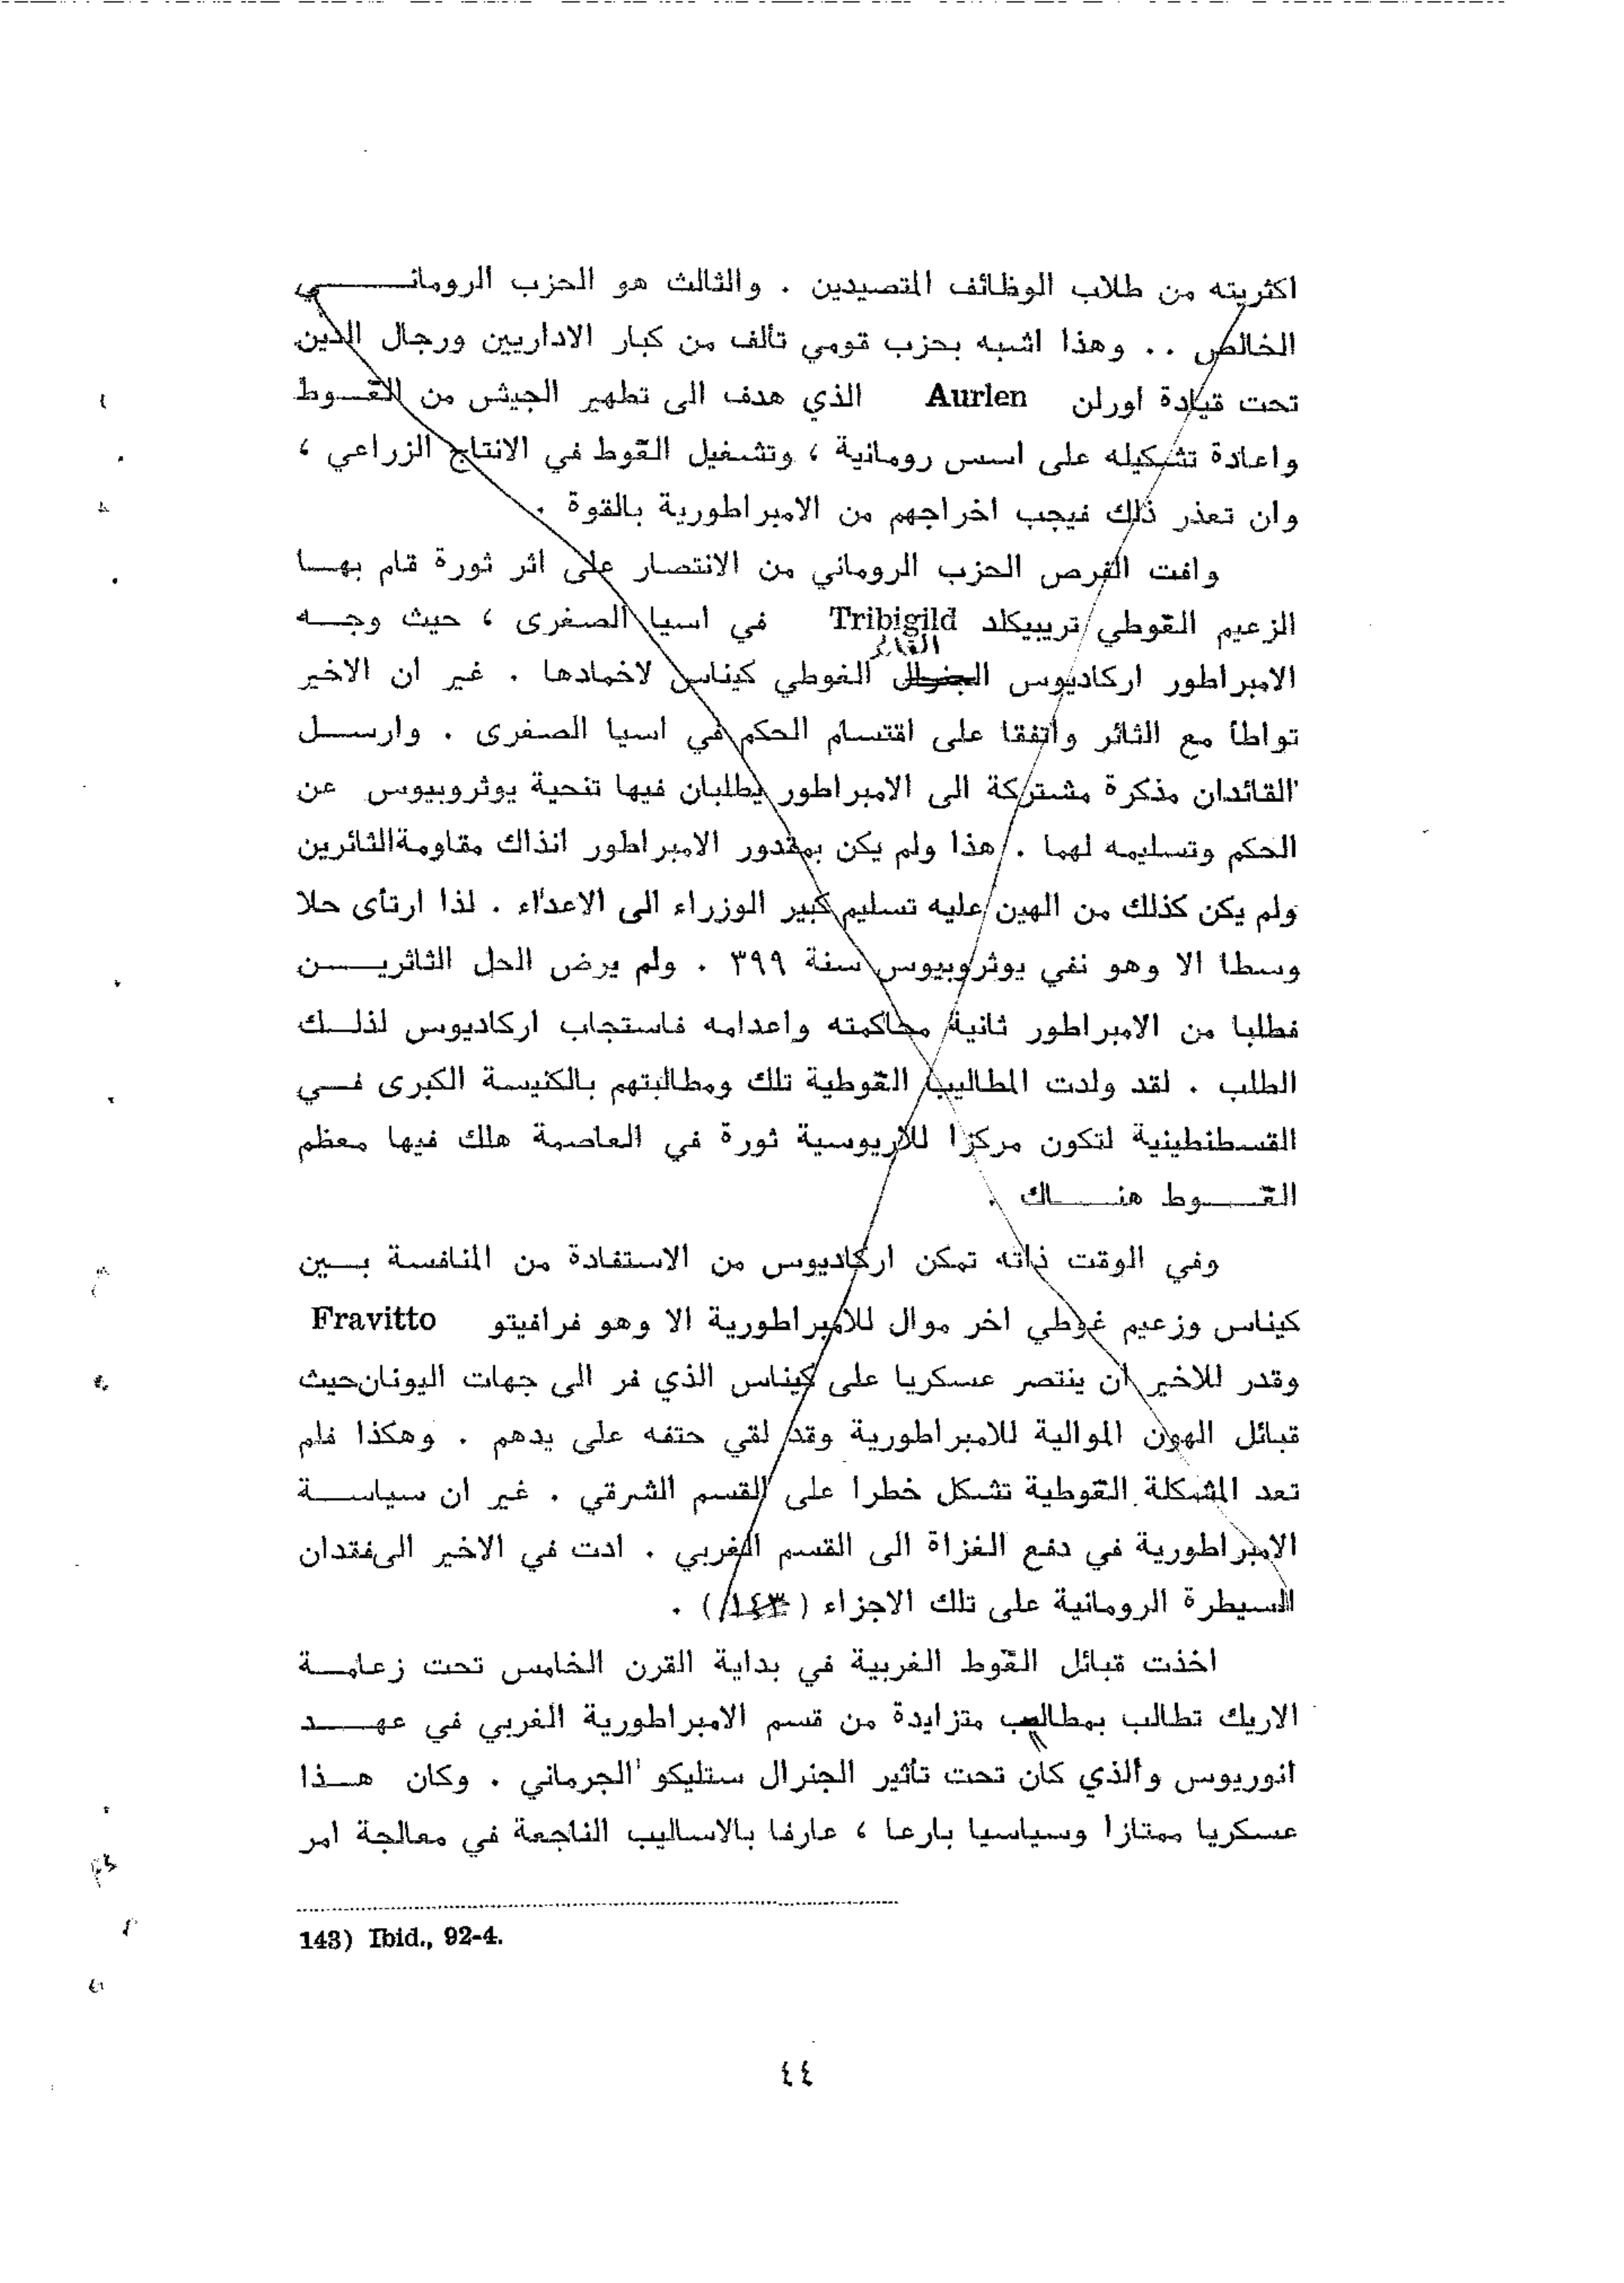 اكثريته من طلاب الوظائف المتصيدين . والثالث هو الحزب الرومانـــــي
الخالص .. وهذا اشبه بحزب قومي تألف من كبار الاداريين ورجال الدين
تحت قيادة اورلن Aurlen الذي هدف الى تطهير الجيش من القــوط
واعادة تشكيله على اسس رومانية ، وتشغيل القوط في الانتاج الزراعي ،
وان تعذر ذلك فيجب اخراجهم من الامبراطورية بالقوة .
وافت الفرص الحزب الروماني من الانتصار على اثر ثورة قام بهــا
الزعيم القوطي تريبيكلد Tribigild في اسيا الصغرى ، حيث وجــه
القائد
الامبراطور اركاديوس الجنرال الغوطي كيناس لاخمادها . غير ان الاخير
تواطأ مع الثائر واتفقا على اقتسام الحكم في اسيا الصغرى . وارســل
القائدان مذكرة مشتركة الى الامبراطور يطلبان فيها تنحية يوثروبيوس عن
الحكم وتسليمه لهما . هذا ولم يكن بمقدور الامبراطور انذاك مقاومةالثائرين
ولم يكن كذلك من الهين عليه تسليم كبير الوزراء الى الاعداء . لذا ارتأى حلا
وسطا الا وهو نفي يوثروبيوس سنة ٣٩٩ . ولم يرض الحل الثائريـــن
فطلبا من الامبراطور ثانية محاكمته واعدامه فاستجاب اركاديوس لذلــك
الطلب . لقد ولدت المطاليب القوطية تلك ومطالبتهم بالكنيسة الكبرى فــي
القسطنطينية لتكون مركزا للاريوسية ثورة في العاصمة هلك فيها معظم
القـــوط هنـــاك .
وفي الوقت ذاته تمكن اركاديوس من الاستفادة من المنافسة بــين
كيناس وزعيم غوطي اخر موال للامبراطورية الا وهو فرافيتو Fravitto
وقدر للاخير ان ينتصر عسكريا على كيناس الذي فر الى جهات اليونانحيث
قبائل الهون الموالية للامبراطورية وقد لقي حتفه على يدهم . وهكذا فلم
تعد المشكلة القوطية تشكل خطرا على القسم الشرقي . غير ان سياســة
الامبراطورية في دفع الغزاة الى القسم الغربي . ادت في الاخير الىفقدان
السيطرة الرومانية على تلك الاجزاء (١٤٣) .
اخذت قبائل القوط الغربية في بداية القرن الخامس تحت زعامــة
الاريك تطالب بمطاليب متزايدة من قسم الامبراطورية الغربي في عهــد
انوريوس والذي كان تحت تأثير الجنرال ستليكو الجرماني . وكان هــذا
عسكريا ممتازا وسياسيا بارعا ، عارفا بالاساليب الناجعة في معالجة امر
143) Ibid., 92-4.
٤٤